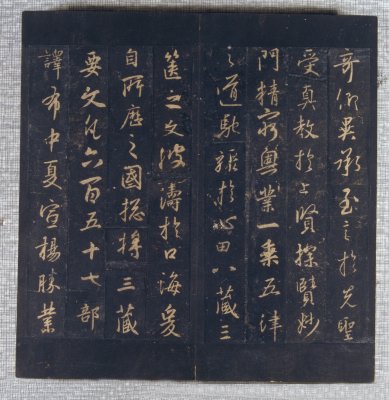 奇仰異承至言於先聖
受真教於上賢探賾妙
門精窮奧業一乘五律
之道馳驟於心田八藏三
篋之文波濤於口海爰
自所歷之國總將三藏
要文凡六百五十七部
譯布中夏宣揚勝業